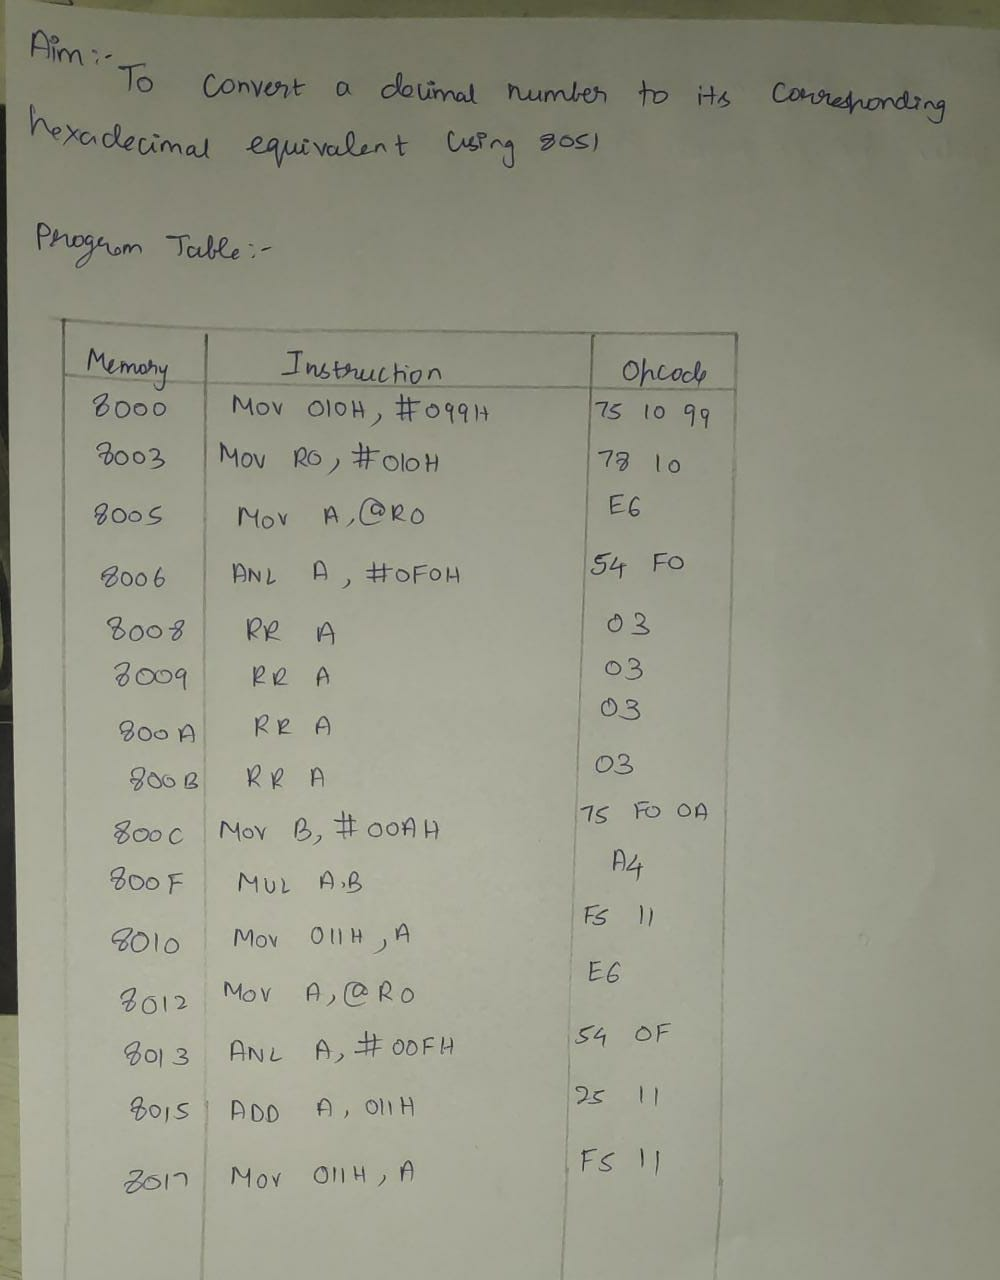 Aim:-
To convert a decimal number to its corresponding
hexadecimal equivalent using 8051
Program Table:-
Memory Instruction Opcode
8000 Mov 010H, #099H 75 10 99
8003 Mov R0, #010H 78 10
8005 Mov A,@R0 E6
8006 ANL A, #0F0H 54 F0
8008 RR A 03
8009 RR A 03
800A RR A 03
800B RR A 03
800C Mov B, #00AH 75 F0 0A
800F MUL A.B A4
8010 Mov 011H, A F5 11
8012 Mov A,@R0 E6
8013 ANL A, #00FH 54 0F
8015 ADD A, 011H 25 11
8017 Mov 011H, A F5 11